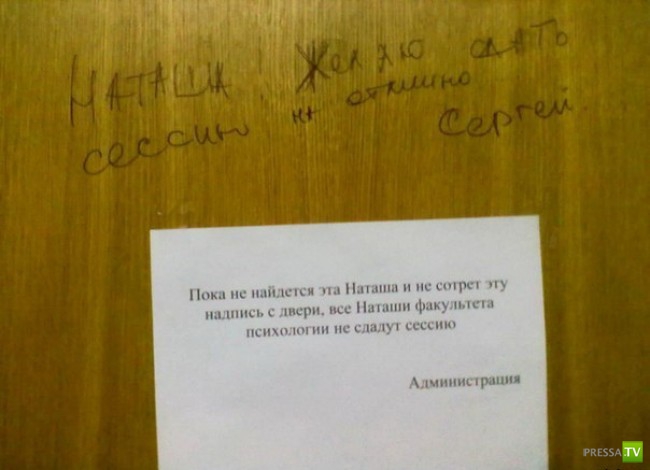 Наташа! Желаю сдать
сессию на отлично
Сергей.
Пока не найдется эта Наташа и не сотрет эту
надпись с двери, все Наташи факультета
психологии не сдадут сессию
Администрация
PRESSA.TV